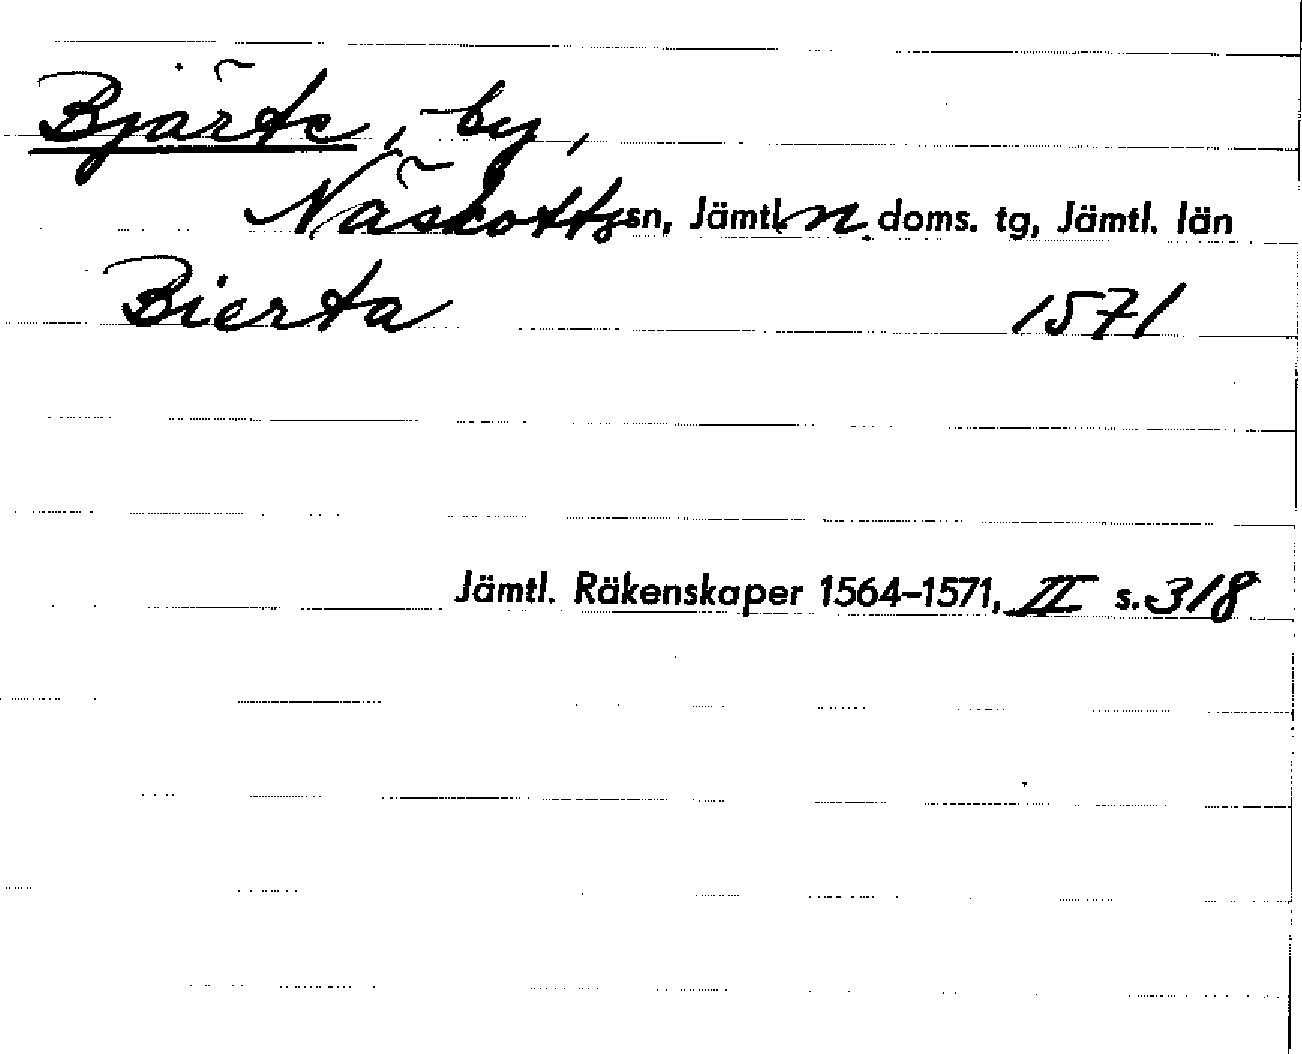 Bjärte, by,
Näskotts sn, Jämtl. n. doms. tg, Jämtl. län
Bierta 1571
Jämtl. Räkenskaper 1564–1571, II s. 318